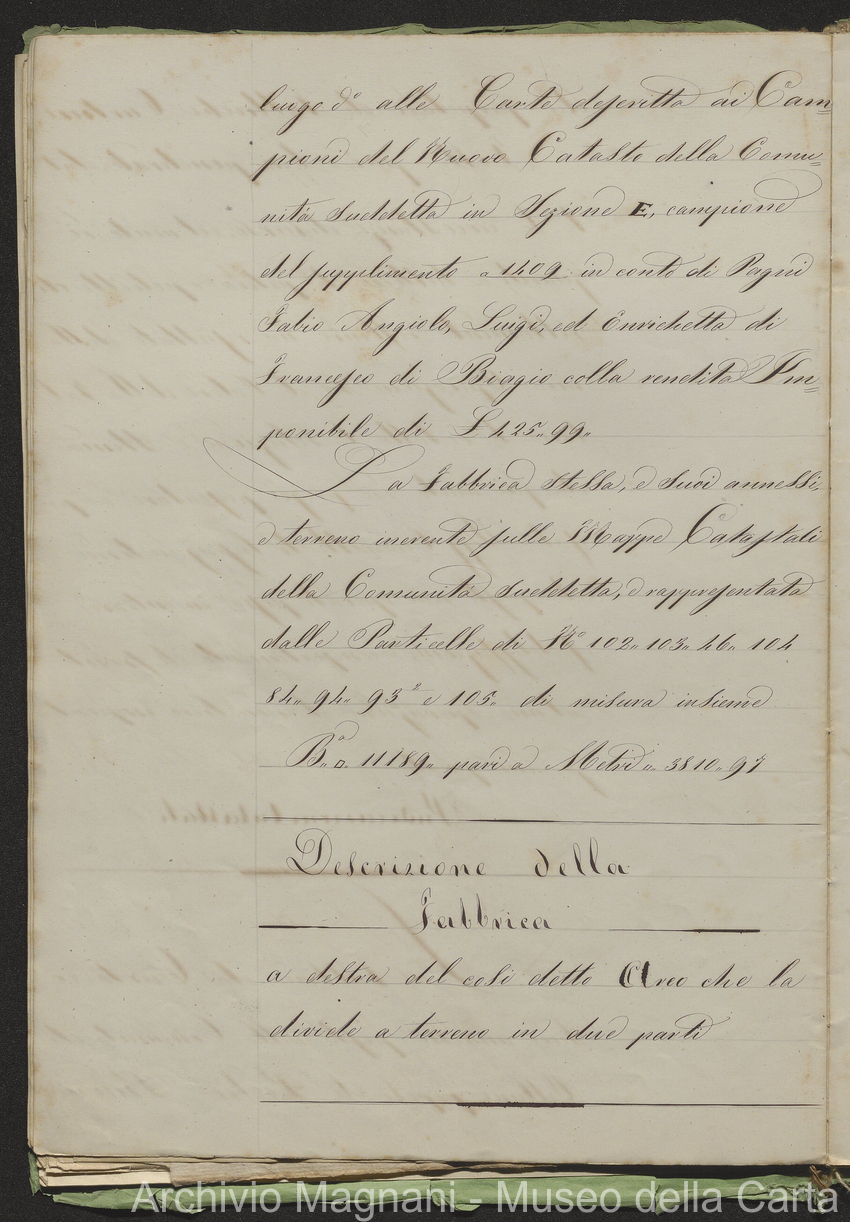 luogo d.° alle Carte descritta ai Cam=
pioni del Nuovo Catasto della Comu=
nità suddetta in Sezione E, campione
del supplimento a 1409 in conto di Pagni
Fabio Angiolo, Luigi, ed Enrichetta di
Francesco di Biagio colla rendita Im=
ponibile di £ 425,, 99,,
La Fabbrica stessa, e suoi annessi,
e terreno inerente sulle Mappe Catastali
della Comunità suddetta, è rappresentata
dalle Particelle di N° 102,, 103,, 46,, 104
84,, 94,, 93² e 105,, di misura insieme
B.ª □. 11189,, pari a Metri ,, 3810,, 97
Descrizione della
Fabbrica
a destra del così detto Arco che la
divide a terreno in due parti
Archivio Magnani - Museo della Carta